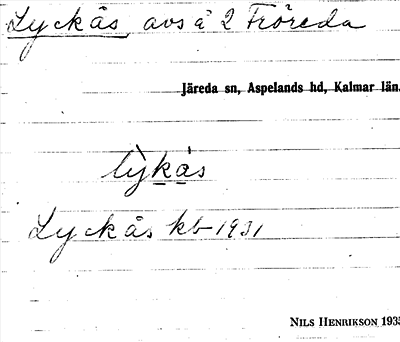 Lyckås avs å 2 Fröreda
Järeda sn, Aspelands hd, Kalmar län.
lỳkås
Lyckås kb 1931
NILS HENRIKSON 1935